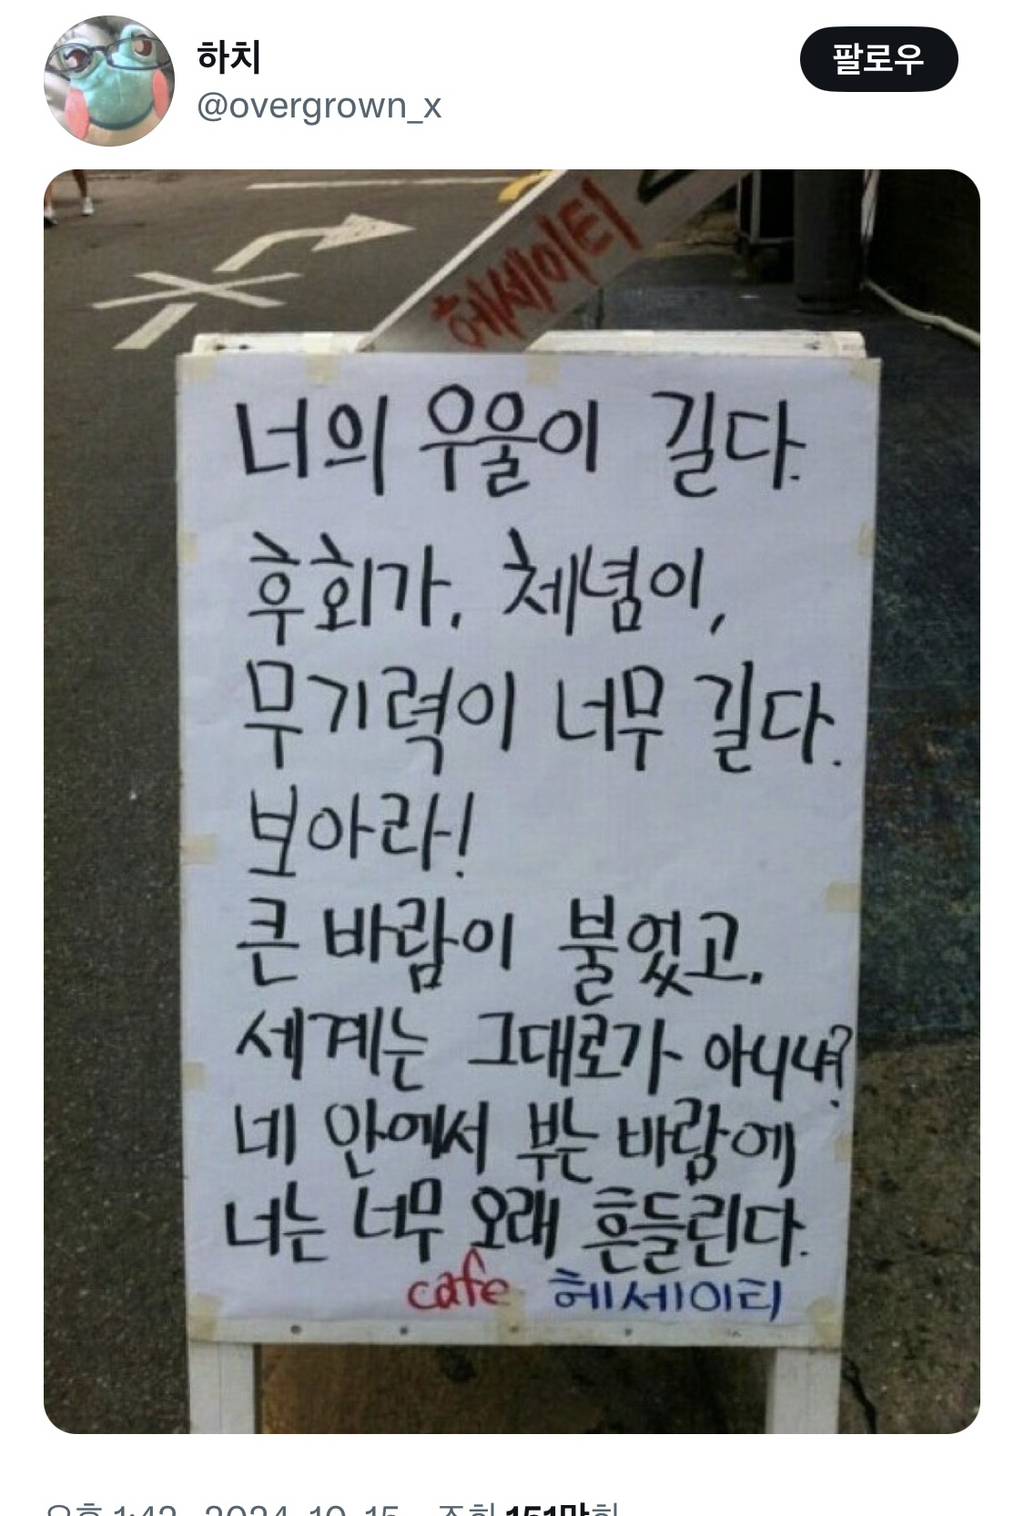 하치
팔로우
@overgrown_x
헤세이티
너의 우울이 길다.
후회가, 체념이,
무기력이 너무 길다.
보아라!
큰 바람이 불었고,
세계는 그대로가 아니냐?
네 안에서 부는 바람에
너는 너무 오래 흔들린다.
cafe 헤세이티
오후 1:42 · 2024. 10. 15. · 조회 151만회